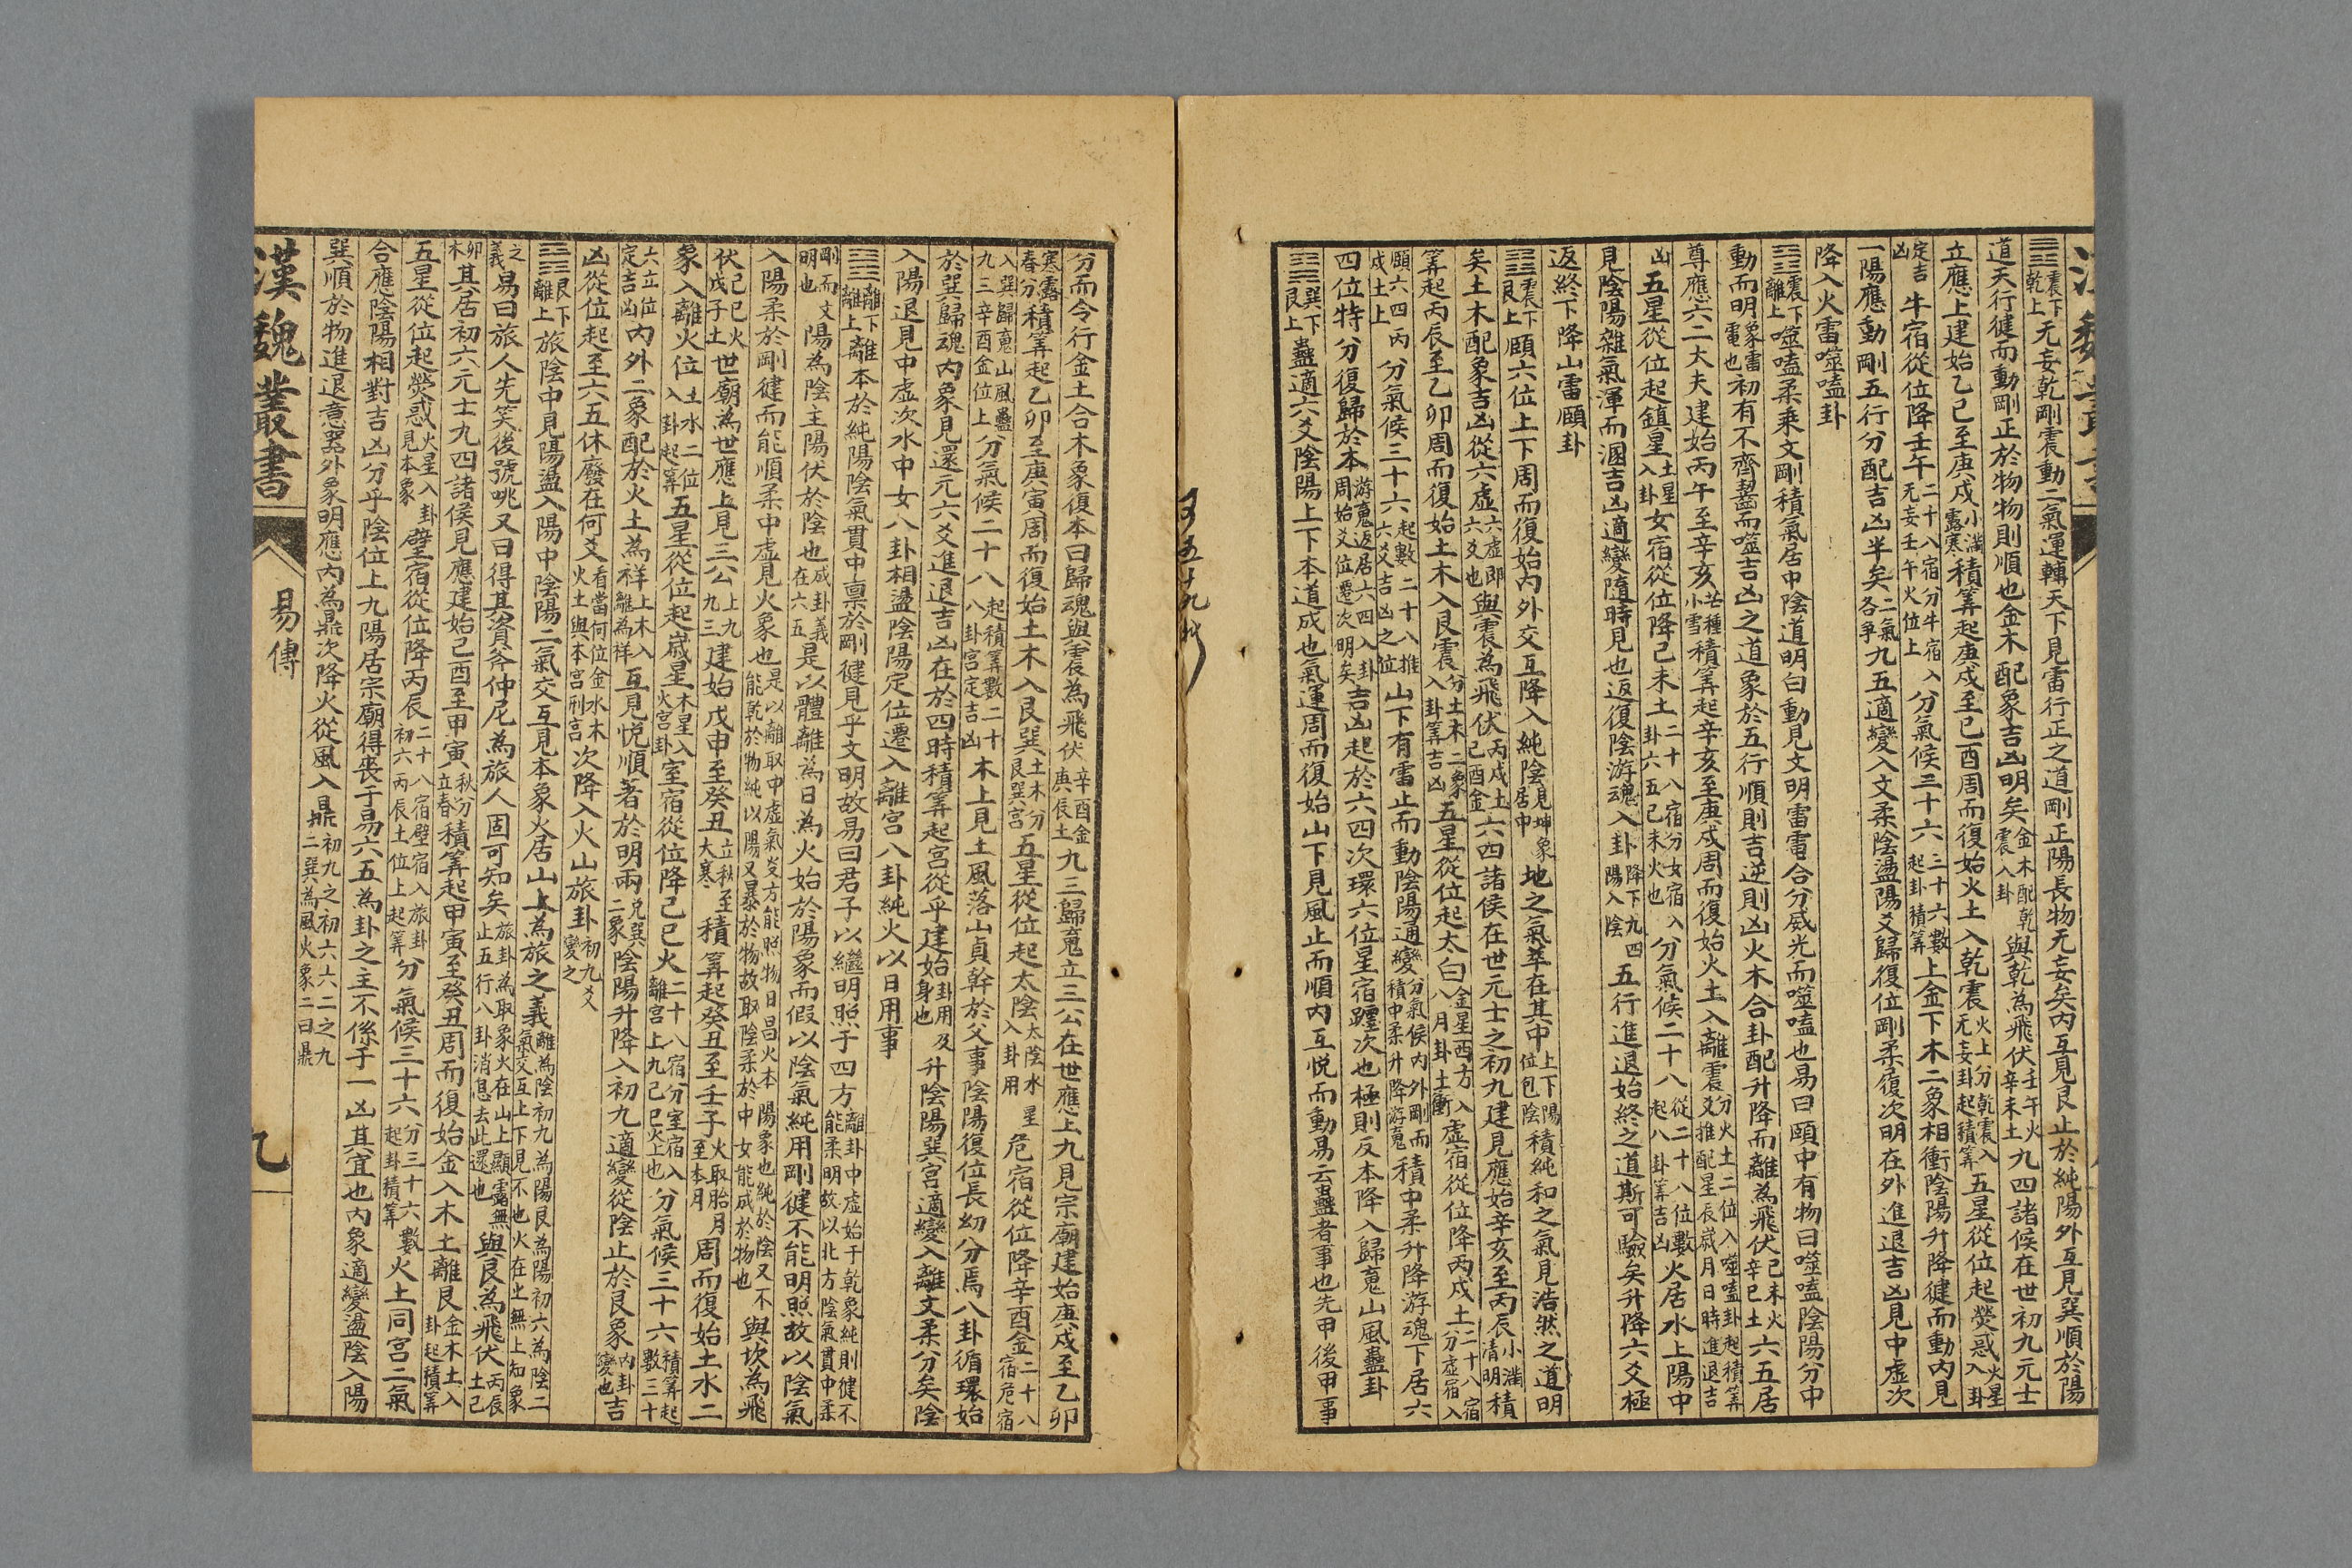 ䷘震下乾上无妄乾剛震動二氣運轉天下見雷行正之道剛正陽長物无妄矣內互見艮止於純陽外互見巽順於陽
道天行健而動剛正於物物則順也金木配象吉凶明矣金木配乾震入卦與乾為飛伏壬午火辛未土九四諸侯在世初九元士
立應上建始乙巳至庚戌小滿寒露積筭起庚戌至巳酉周而復始火土入乾震火上分乾震入无妄卦起積筭五星從位起熒惑火星入卦
定吉凶牛宿從位降壬午二十八宿分牛宿入无妄壬午火位上分氣候三十六三十六數起卦積筭上金下木二象相衝陰陽升降健而動內見
一陽應動剛五行分配吉凶半矣二氣各爭九五適變入文柔陰盪陽爻歸復位剛柔履次明在外進退吉凶見中虛次
降入火雷噬嗑卦
䷔震下離上噬嗑柔乘文剛積氣居中陰道明白動見文明雷電合分威光而噬嗑也易曰頤中有物曰噬嗑陰陽分中
動而明象雷電也初有不齊齧而噬吉凶之道象於五行順則吉逆則凶火木合卦配升降而離為飛伏己未火辛巳土六五居
尊應六二大夫建始丙午至辛亥芒種小雪積筭起辛亥至庚戌周而復始火土入離震分火土二位入噬嗑卦起積筭爻推配星辰歲月日時進退吉
凶五星從位起鎮星土星入卦女宿從位降己未土二十八宿分女宿入卦六五己未火也分氣候二十八從二十八位數起八卦筭吉凶火居水上陽中
見陰陽雜氣渾而溷吉凶適變隨時見也返復陰游魂入卦降下九四陽入陰五行進退始終之道斯可驗矣升降六爻極
返終下降山雷頤卦
䷚震下艮上頤六位上下周而復始內外交互降入純陰見坤象居中地之氣萃在其中上下陽位包陰積純和之氣見浩然之道明
矣土木配象吉凶從六虛六虛即六爻也與震為飛伏丙戌土己酉金六四諸侯在世元士之初九建見應始辛亥至丙辰小滿清明積
筭起丙辰至乙卯周而復始土木入艮震分土木二象入卦筭吉凶五星從位起太白金星西方入八月卦土衝虛宿從位降丙戌土二十八宿分虛宿入
頤六四丙戌土上分氣候三十六起數二十八推六爻吉凶之位山下有雷止而動陰陽通變分氣候內外剛而積中柔升降游䰟積中柔升降游魂下居六
四位特分復歸於本游䰟返居六四入卦周始爻位遷次明矣吉凶起於六四次環六位星宿躔次也極則反本降入歸䰟山風蠱卦
䷑巽下艮上蠱適六爻陰陽上下本道成也氣運周而復始山下見風止而順內互悅而動易云蠱者事也先甲後甲事
分而令行金土合木象復本曰歸魂與震為飛伏辛酉金庚辰土九三歸䰟立三公在世應上九見宗廟建始庚戌至乙卯
寒露春分積筭起乙卯至庚寅周而復始土木入艮巽土木分艮巽宮五星從位起太陰太陰水星入卦用危宿從位降辛酉金二十八宿危宿
入巽歸䰟山風蠱九三辛酉金位上分氣候二十八起積筭數二十八卦宮定吉凶木上見土風落山貞幹於父事陰陽復位長幼分焉八卦循環始
於巽歸魂內象見還元六爻進退吉凶在於四時積筭起宮從乎建始卦用及身也升陰陽巽宮適變入離文柔分矣陰
入陽退見中虛次水中女八卦相盪陰陽定位遷入離宮八卦純火以日用事
䷝離下離上離本於純陽陰氣貫中稟於剛健見乎文明故易曰君子以繼明照于四方離卦中虛始于乾象純則健不能柔明故以北方陰氣貫中柔
剛而文明也陽為陰主陽伏於陰也成卦義在六五是以體離為日為火始於陽象而假以陰氣純用剛健不能明照故以陰氣
入陽柔於剛健而能順柔中虛見火象也是以離取中虛氣炎方能照物日昌火本陽象也純於陰又不能乾於物純以陽又暴於物故取陰柔於中女能成於物也與坎為飛
伏己巳火戊子土世廟為世應上見三公上九九三建始戊申至癸丑立秋至大寒積筭起癸丑至壬子火取胎月至本月周而復始土水二
象入離火位土水二位入卦起筭五星從位起歲星木星入火宮卦室宿從位降己巳火二十八宿分室宿入離宮上九己巳火上也分氣候三十六積筭起數三十
六立位定吉凶內外二象配於火土為祥上木入離為祥互見悅順著於明兩兌巽二象陰陽升降入初九適變從陰止於艮象內卦變也吉
凶從位起至六五休廢在何爻看當何位金水木火土與本宮刑宮次降入火山旅卦初九爻變之
䷷艮下離上旅陰中見陽盪入陽中陰陽二氣交互見本象火居山上為旅之義離為陰初九為陽艮為陽初六為陰二氣交互上下見不也火在上無上知象
之義易曰旅人先笑後號咷又曰得其資斧仲尼為旅人固可知矣旅卦為取象火在山上顯露無止五行八卦消息去此還也與艮為飛伏丙辰土己
卯木其居初六元士九四諸侯見應建始己酉至甲寅秋分立春積筭起甲寅至癸丑周而復始金入木土離艮金木土入卦起積筭
五星從位起熒惑火星入卦見本象壁宿從位降丙辰二十八宿壁宿入旅卦初六丙辰土位上起筭分氣候三十六分三十六數起卦積筭火上同宮二氣
合應陰陽相對吉凶分乎陰位上九陽居宗廟得喪于易六五為卦之主不係于一凶其宜也內象適變盪陰入陽
巽順於物進退意器外象明應內為鼎次降火從風入鼎初九之初六六二之九二巽為風火象二曰鼎
漢魏叢書
易傳
九